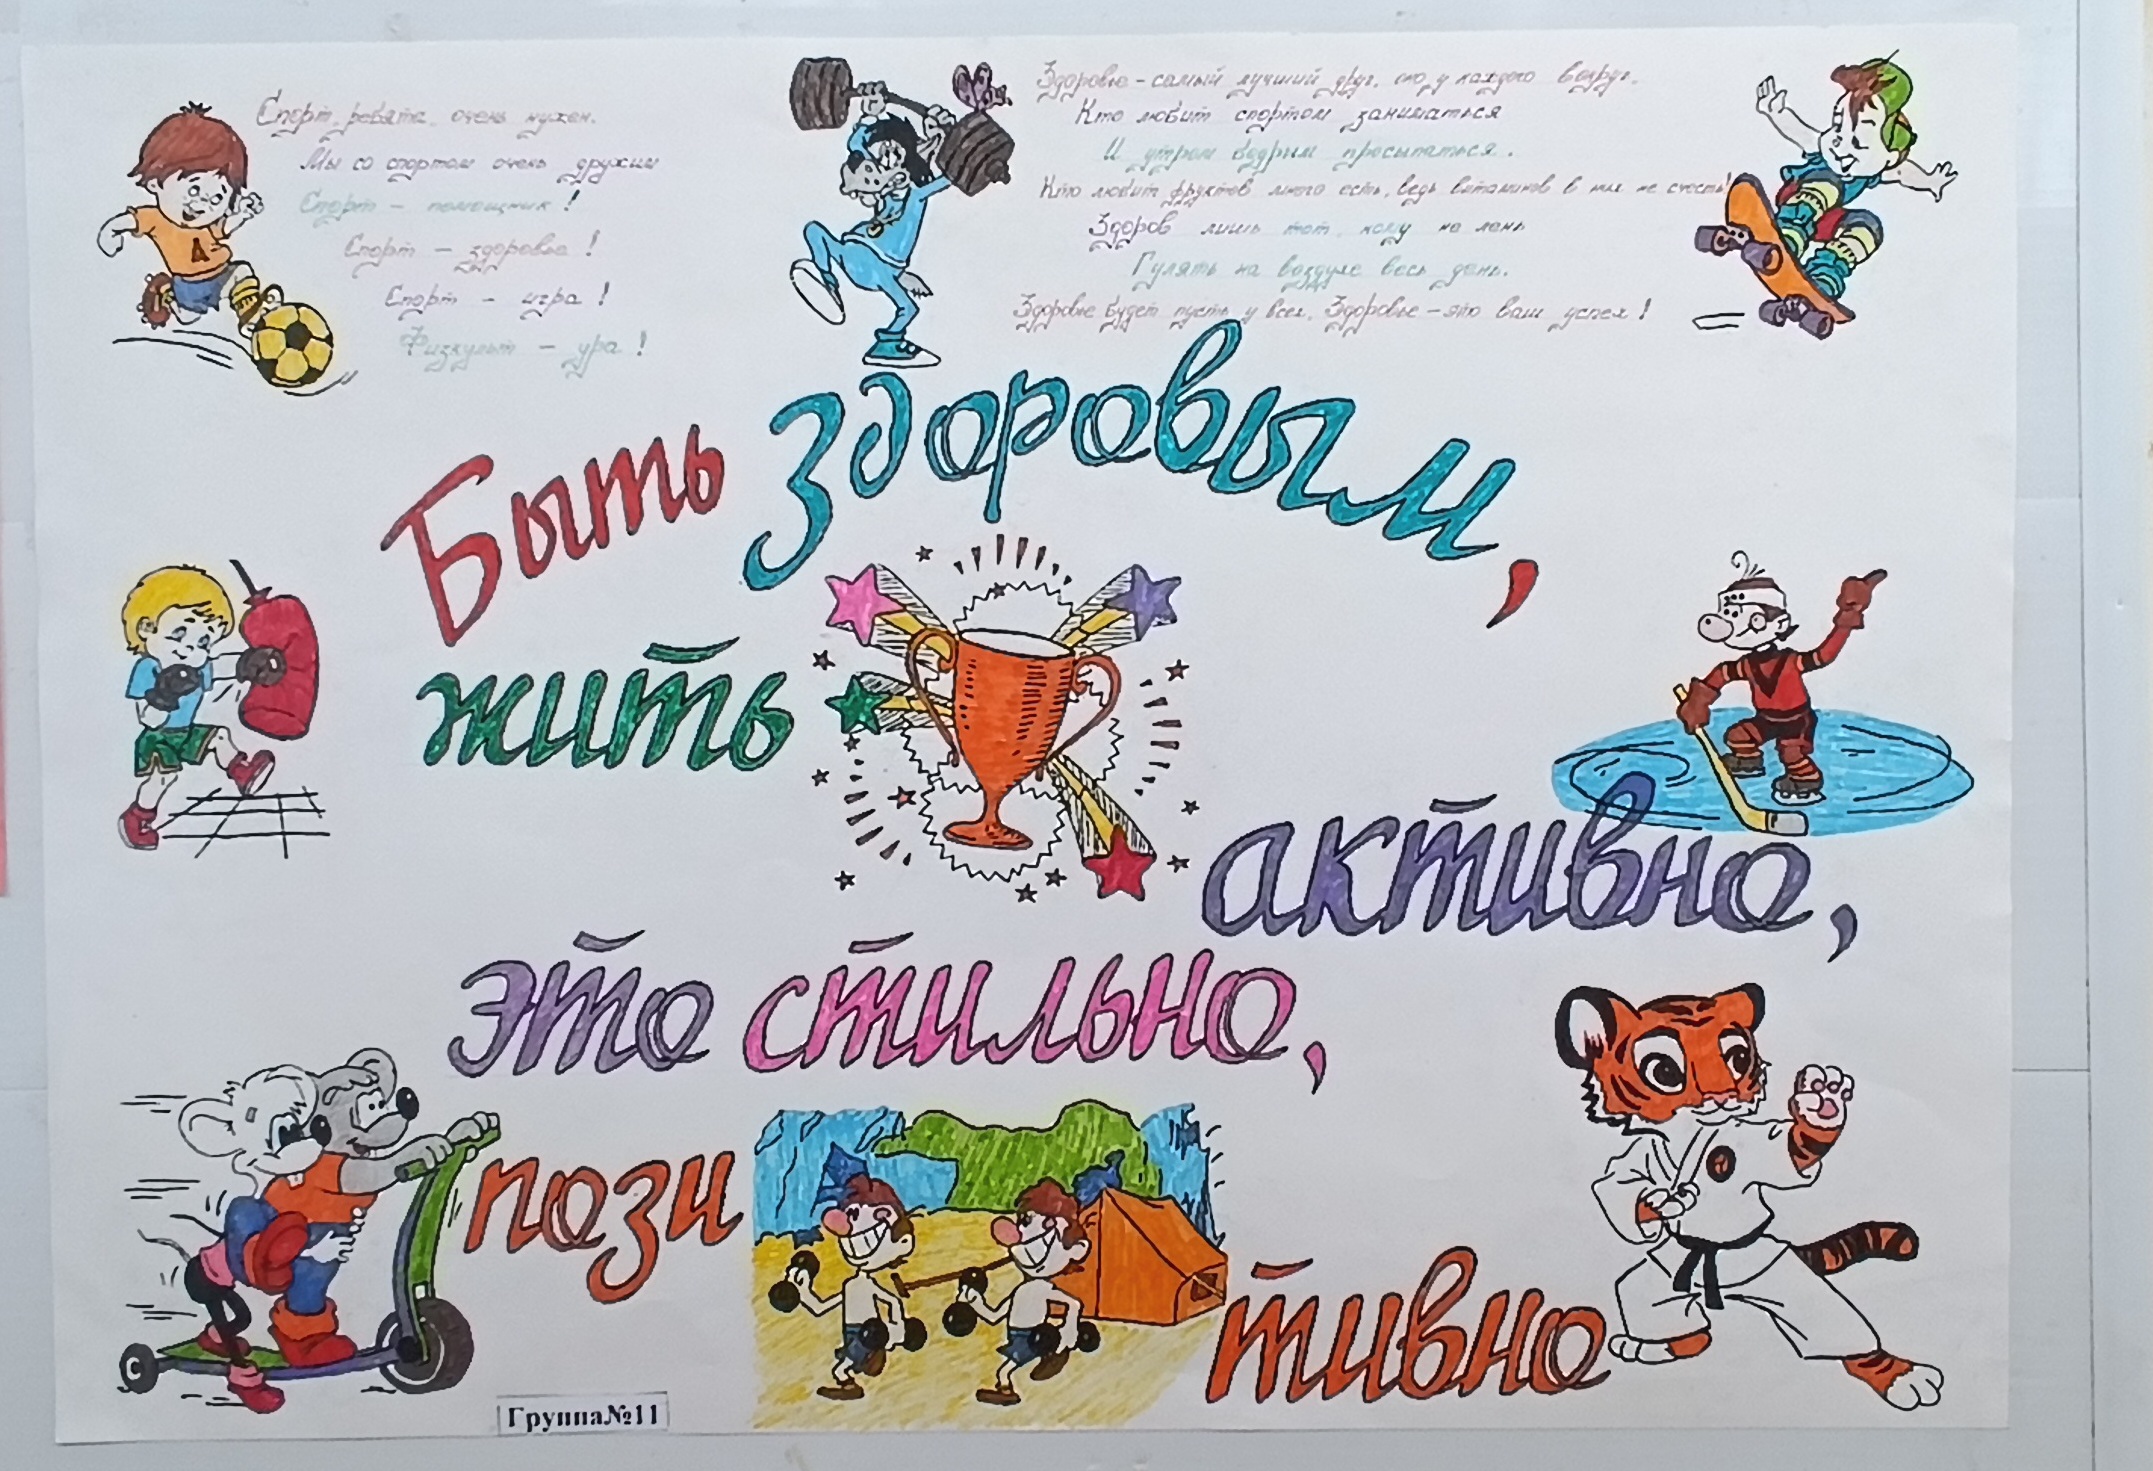 Спорт, ребята, очень нужен.
Мы со спортом очень дружим
Спорт - помощник!
Спорт - здоровье!
Спорт - игра!
Физкульт - ура!
Здоровье - самый лучший друг, оно у каждого вокруг.
Кто любит спортом заниматься
И утром бодрым просыпаться.
Кто любит фруктов много есть, ведь витаминов в них не счесть!
Здоров лишь тот, кому не лень
Гулять на воздухе весь день.
Здоровье будет пусть у всех, Здоровье - это ваш успех!
Быть здоровым,
жить
активно,
это стильно,
пози
тивно
А
Группа№11